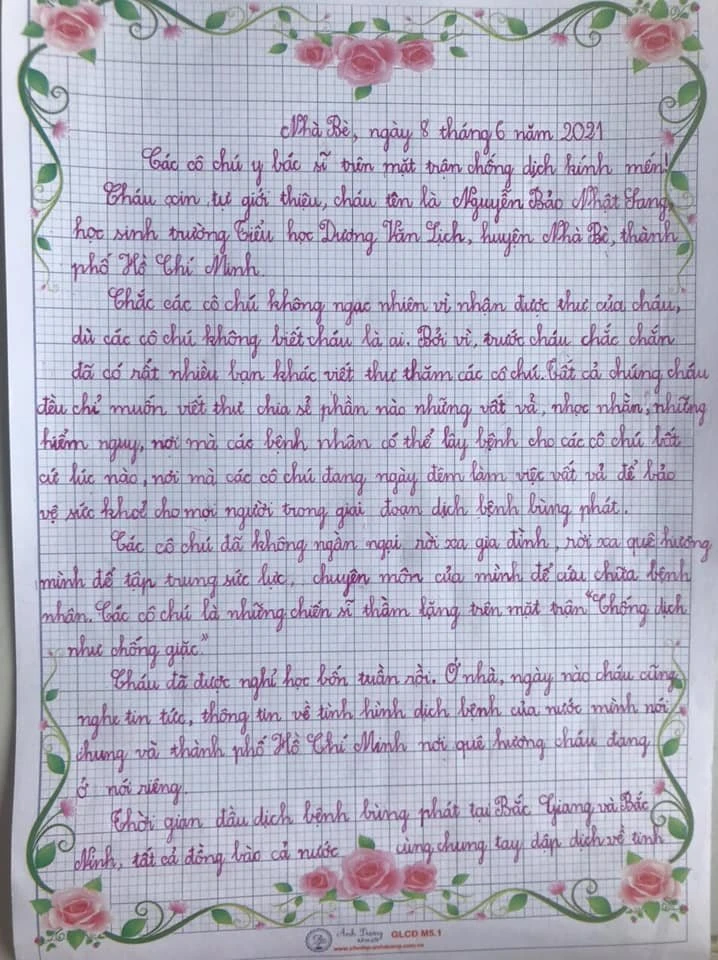 Nhà Bè, ngày 8 tháng 6 năm 2021
Các cô chú y bác sĩ trên mặt trận chống dịch kính mến!
Cháu xin tự giới thiệu, cháu tên là Nguyễn Bảo Nhật Sang,
học sinh trường Tiểu học Dương Văn Lịch, huyện Nhà Bè, thành
phố Hồ Chí Minh.
Chắc các cô chú không ngạc nhiên vì nhận được thư của cháu,
dù các cô chú không biết cháu là ai. Bởi vì, trước cháu chắc chắn
đã có rất nhiều bạn khác viết thư thăm các cô chú. Tất cả chúng cháu
đều chỉ muốn viết thư chia sẻ phần nào những vất vả, nhọc nhằn, những
hiểm nguy, nơi mà các bệnh nhân có thể lây bệnh cho các cô chú bất
cứ lúc nào, nơi mà các cô chú đang ngày đêm làm việc vất vả để bảo
vệ sức khoẻ cho mọi người trong giai đoạn dịch bệnh bùng phát.
Các cô chú đã không ngần ngại rời xa gia đình, rời xa quê hương
mình để tập trung sức lực, chuyên môn của mình để cứu chữa bệnh
nhân. Các cô chú là những chiến sĩ thầm lặng trên mặt trận "Chống dịch
như chống giặc."
Cháu đã được nghỉ học bốn tuần rồi. Ở nhà, ngày nào cháu cũng
nghe tin tức, thông tin về tình hình dịch bệnh của nước mình nói
chung và thành phố Hồ Chí Minh nơi quê hương cháu đang
ở nói riêng.
Thời gian đầu dịch bệnh bùng phát tại Bắc Giang và Bắc
Ninh, tất cả đồng bào cả nước cùng chung tay dập dịch về tinh
GLCD M5.1